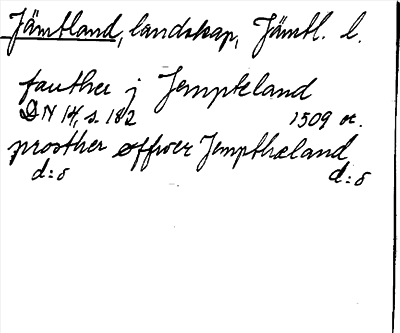 Jämtland, landskap, Jämtl. l.
fauther j Jempteland
DN 14, s. 182 1509 or.
prosther offwer Jempthæland
d:o d:o